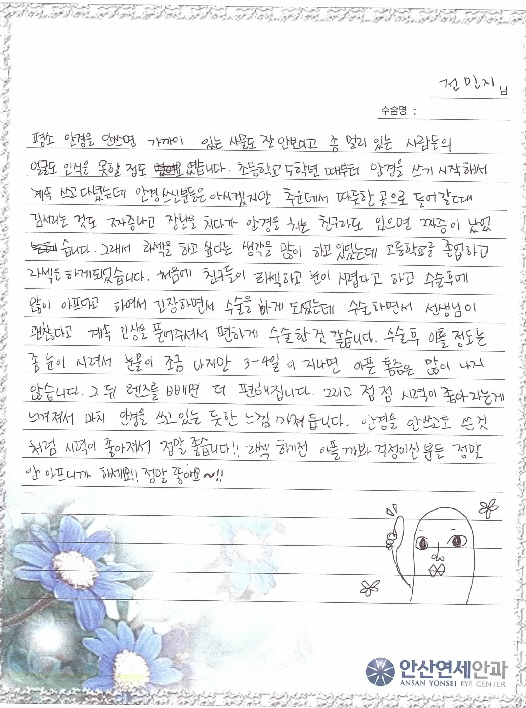 전민지님
수술명 :
평소 안경을 안쓰면 가까이 있는 사물도 잘 안보이고 좀 멀리 있는 사람들의
얼굴도 인식을 못할 정도 였습니다. 초등학교 5학년 때부터 안경을 쓰기 시작해서
계속 쓰고 다녔는데 안경쓰신분들은 아시겠지만 추운데서 따뜻한 곳으로 들어갈때
김서리는 것도 짜증나고 장난을 치다가 안경을 치는 친구라도 있으면 짜증이 났었
습니다. 그래서 라섹을 하고 싶다는 생각을 많이 하고 있었는데 고등학교를 졸업하고
라섹을 하게되었습니다. 처음에 친구들이 라섹하고 눈이 시렵다고 하고 수술후에
많이 아프다고 하여서 긴장하면서 수술을 하게 되었는데 수술하면서 선생님이
괜찮다고 계속 긴장을 풀어주셔서 편하게 수술한 것 같습니다. 수술후 이틀 정도는
좀 눈이 시려서 눈물이 조금 나지만 3~4일이 지나면 아픈 통증은 많이 나지
않습니다. 그 뒤 렌즈를 빼면 더 편해집니다. 그리고 점점 시력이 좋아지는게
느껴져서 마치 안경을 쓰고 있는 듯한 느낌까져 듭니다. 안경을 안쓰고도 쓴것
처럼 시력이 좋아져서 정말 좋습니다!! 라섹 하기전 아플까봐 걱정이신 분들 정말
안 아프니까 하세요!! 정말 좋아요~!!
안산연세안과
ANSAN YONSEI EYE CENTER